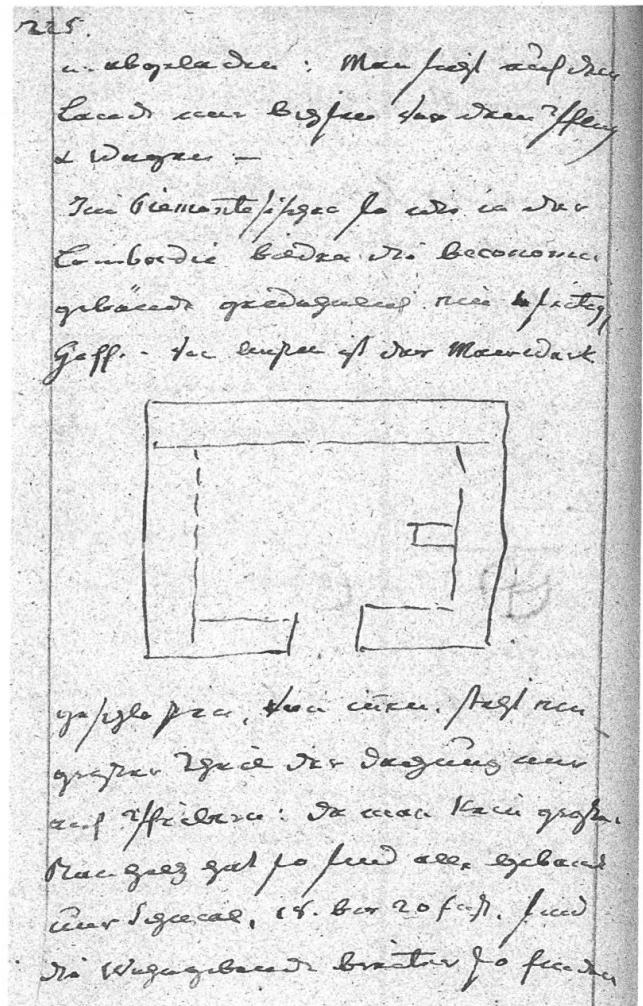 225.
u. abgeladen: Man sieht auf dem
Lande nur
& Wagen —
Im Piemontesischen so wie in der
Lombardie bilden die Oeconomie
gebäude gewöhnlich ein
Hoff. - Von außen ist der
geschlossen, von innen steht ein
großer Theil der Dachung nur
auf Pfeilern: da man kein großes
Bauholz hat so sind alle Gebäude
nur schmal, 18. bis 20 fuß, sind
die Wohngebäude breiter so finden